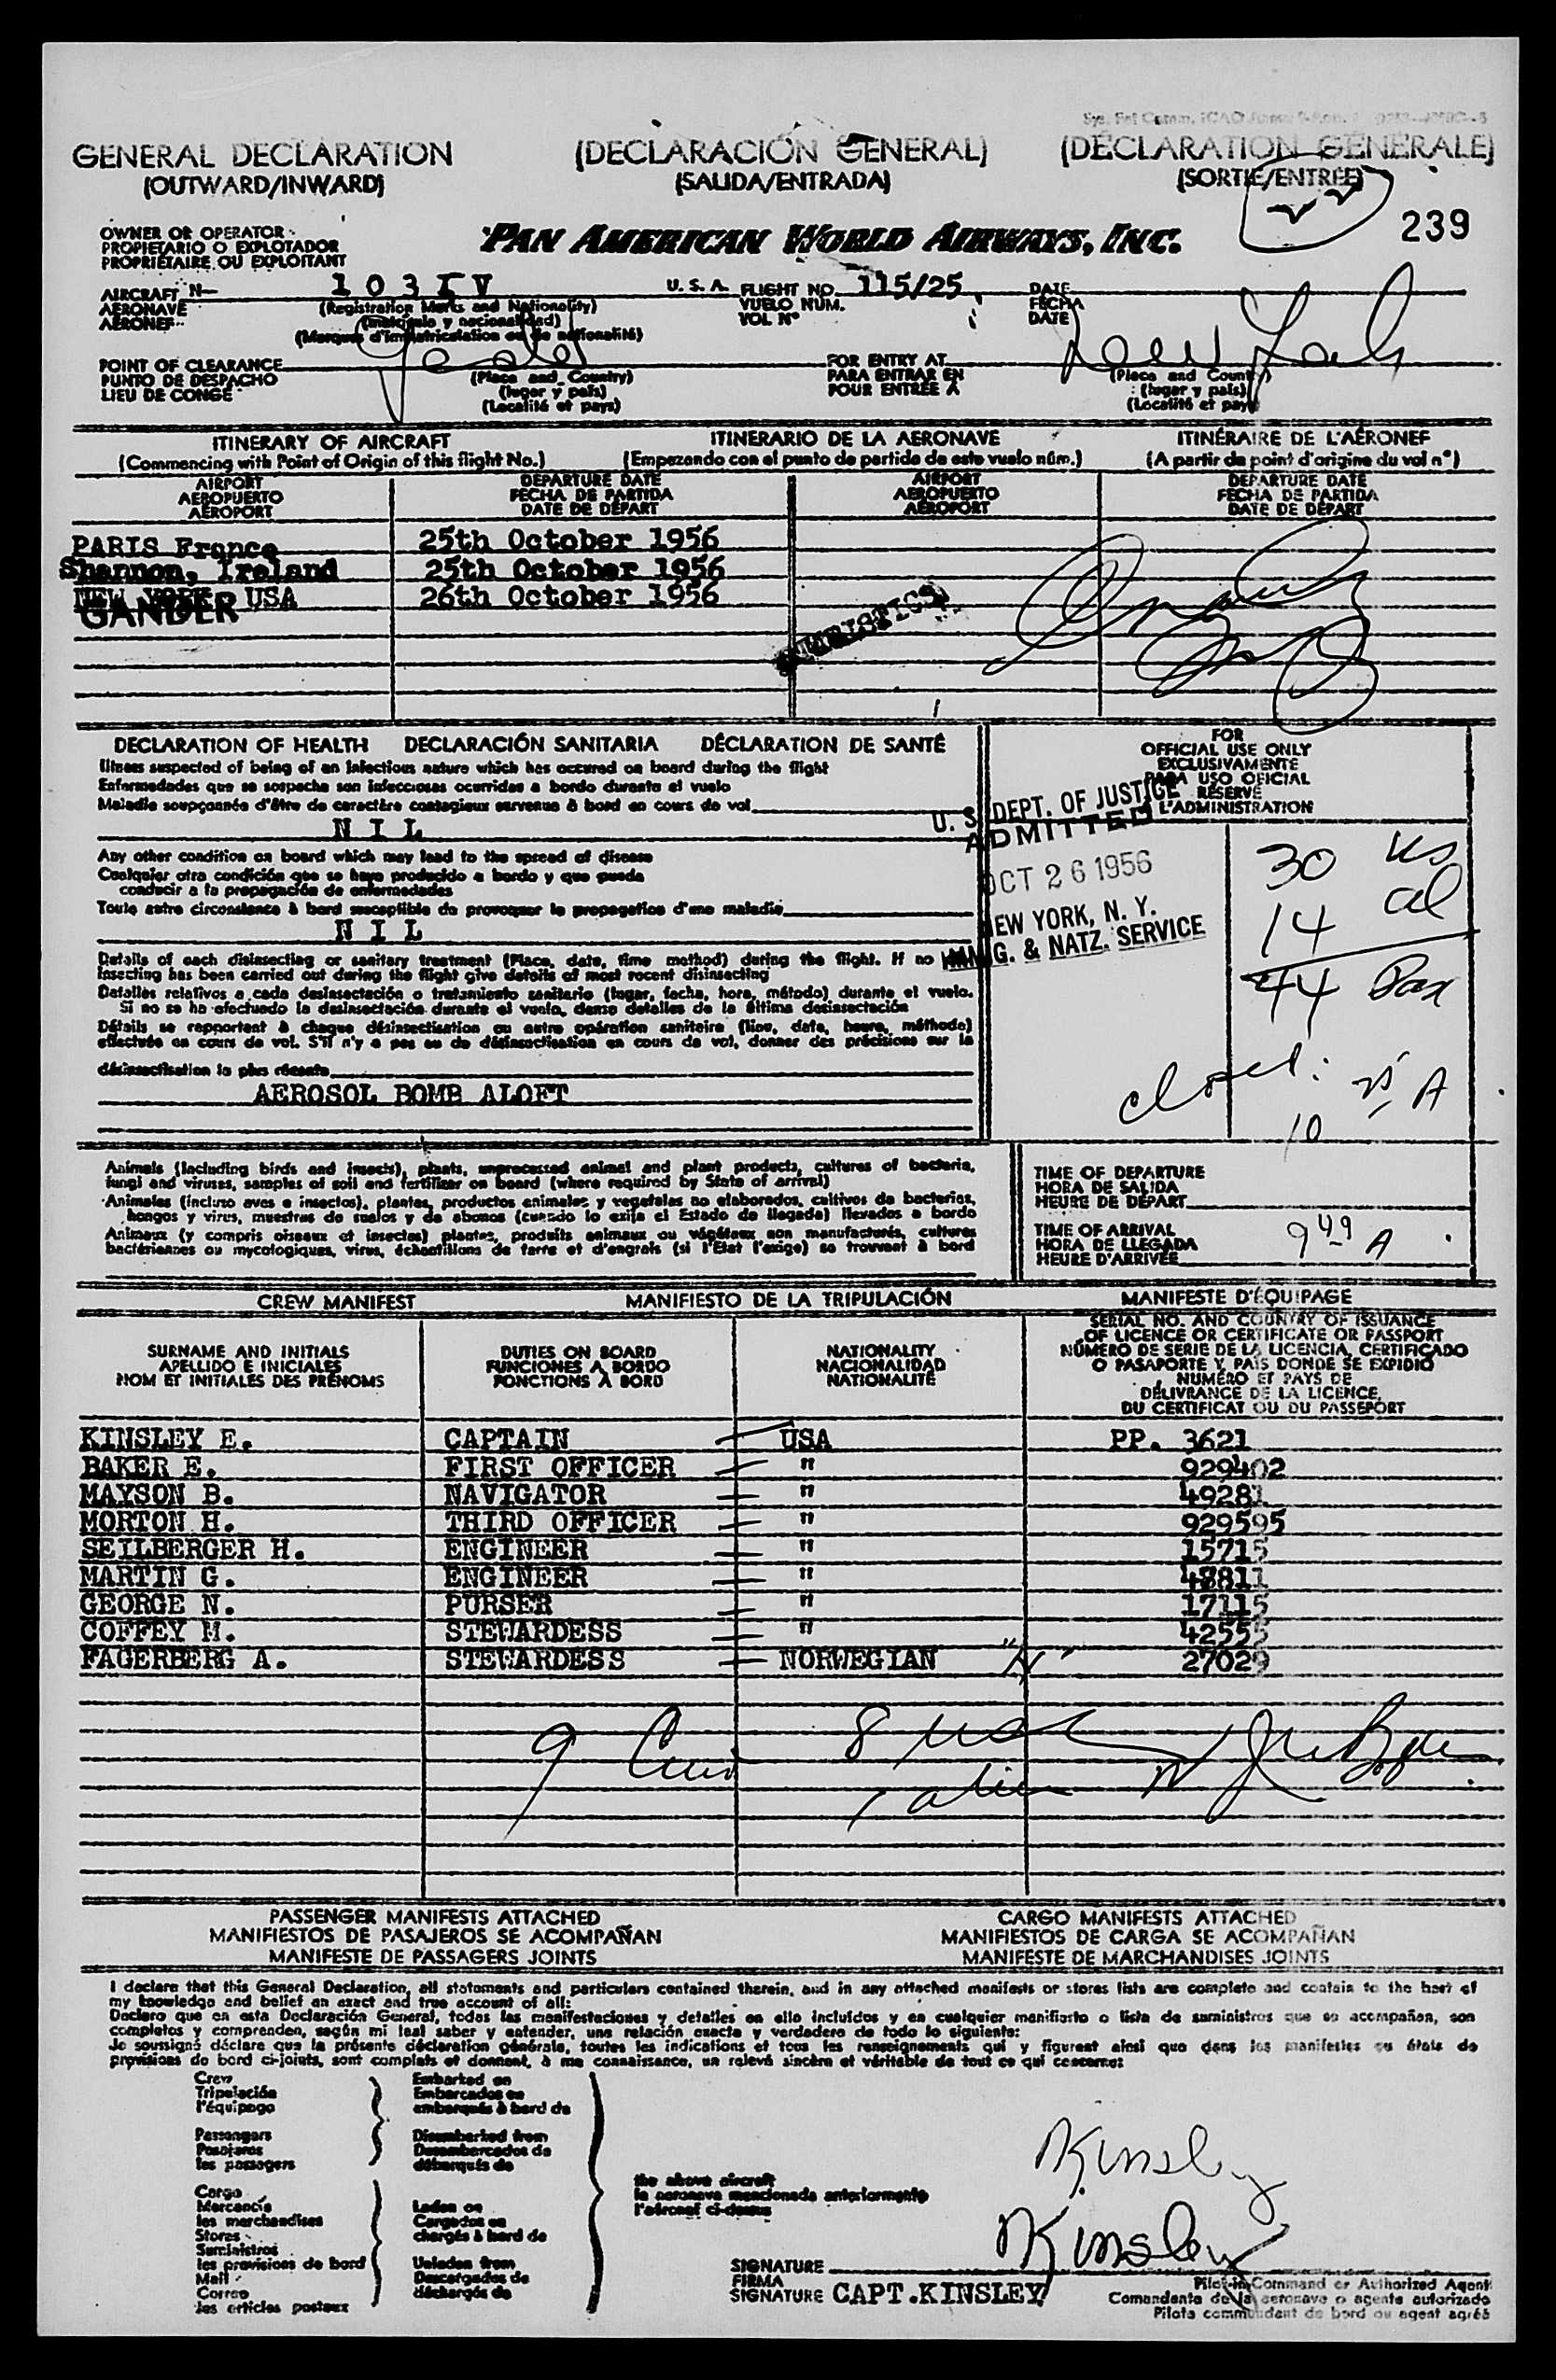 GENERAL DECLARATION
(OUTWARD/INWARD)
(DECLARACIÓN GENERAL)
(SALIDA/ENTRADA)
(DÉCLARATION GÉNÉRALE)
(SORTIE/ENTRÉE)
239
OWNER OR OPERATOR
PROPIETARIO O EXPLOTADOR
PROPRIÉTAIRE OU EXPLOITANT
PAN AMERICAN WORLD AIRWAYS, INC.
AIRCRAFT N— 103 V U. S. A. FLIGHT NO. 115/25 DATE
AERONAVE (Registration Marks and Nationality) VUELO NÚM. FECHA
AÉRONEF (Matrícula y nacionalidad) VOL N° DATE
(Marques d'immatriculation et de nationalité)
POINT OF CLEARANCE FOR ENTRY AT New York
PUNTO DE DESPACHO (Place and Country) PARA ENTRAR EN (Place and Country)
LIEU DE CONGÉ (lugar y país) POUR ENTRÉE À (lugar y país)
(Localité et pays) (Localité et pays)
ITINERARY OF AIRCRAFT ITINERARIO DE LA AERONAVE ITINÉRAIRE DE L'AÉRONEF
(Commencing with Point of Origin of this flight No.) (Empezando con el punto de partida de este vuelo núm.) (A partir de point d'origine du vol n°)
AIRPORT DEPARTURE DATE AIRPORT DEPARTURE DATE
AEROPUERTO FECHA DE PARTIDA AEROPUERTO FECHA DE PARTIDA
AÉROPORT DATE DE DÉPART AÉROPORT DATE DE DÉPART
PARIS France 25th October 1956
Shannon, Ireland 25th October 1956
NEW YORK USA 26th October 1956
GANDER
DECLARATION OF HEALTH DECLARACIÓN SANITARIA DÉCLARATION DE SANTÉ
Illness suspected of being of an infectious nature which has occured on board during the flight
Enfermedades que se sospecha son infecciosas ocurridas a bordo durante el vuelo
Maladie soupçonnée d'être de caractère contagieux survenue à bord en cours de vol
NIL
Any other condition on board which may lead to the spread of disease
Cualquier otra condición que se haya producido a bordo y que pueda
conducir a la propagación de enfermedades
Toute autre circonstance à bord susceptible de provoquer la propagation d'une maladie
NIL
Details of each disinsecting or sanitary treatment (Place, date, time method) during the flight. If no
insecting has been carried out during the flight give details of most recent disinsecting
Detalles relativos a cada desinsectación o tratamiento sanitario (lugar, fecha, hora, método) durante el vuelo.
Si no se ha efectuado la desinsectación durante el vuelo, dense detalles de la última desinsectación
Détails se rapportant à chaque désinsectisation ou autre opération sanitaire (lieu, date, heure, méthode)
effectuée en cours de vol. S'il n'y a pas eu de désinsectisation en cours de vol, donner des précisions sur la
désinsectisation la plus récente
AEROSOL BOMB ALOFT
FOR
OFFICIAL USE ONLY
EXCLUSIVAMENTE
PARA USO OFICIAL
RÉSERVÉ
L'ADMINISTRATION
U. S. DEPT. OF JUSTICE
ADMITTED
OCT 26 1956
NEW YORK, N. Y.
IMMIG. & NATZ. SERVICE
30 US
14 al
44 Pax
closed: 10 A
Animals (including birds and insects), plants, unprocessed animal and plant products, cultures of bacteria,
fungi and viruses, samples of soil and fertilizer on board (where required by State of arrival)
Animales (incluso aves e insectos), plantas, productos animales y vegetales no elaborados, cultivos de bacterias,
hongos y virus, muestras de suelos y de abonos (cuando lo exija el Estado de llegada) llevados a bordo
Animaux (y compris oiseaux et insectes) plantes, produits animaux ou végétaux non manufacturés, cultures
bactériennes ou mycologiques, virus, échantillons de terre et d'engrais (si l'État l'exige) se trouvant à bord
TIME OF DEPARTURE
HORA DE SALIDA
HEURE DE DÉPART
TIME OF ARRIVAL
HORA DE LLEGADA
HEURE D'ARRIVÉE
9 49 A
CREW MANIFEST MANIFIESTO DE LA TRIPULACIÓN MANIFESTE D'ÉQUIPAGE
SURNAME AND INITIALS
APELLIDO E INICIALES
NOM ET INITIALES DES PRÉNOMS
DUTIES ON BOARD
FUNCIONES A BORDO
FONCTIONS À BORD
NATIONALITY
NACIONALIDAD
NATIONALITÉ
SERIAL NO. AND COUNTRY OF ISSUANCE
OF LICENCE OR CERTIFICATE OR PASSPORT
NÚMERO DE SERIE DE LA LICENCIA, CERTIFICADO
O PASAPORTE Y PAÍS DONDE SE EXPIDIÓ
NUMÉRO ET PAYS DE
DÉLIVRANCE DE LA LICENCE,
DU CERTIFICAT OU DU PASSEPORT
KINSLEY E. CAPTAIN USA PP. 3621
BAKER E. FIRST OFFICER " 929402
MAYSON B. NAVIGATOR " 49281
MORTON H. THIRD OFFICER " 929595
SEILBERGER H. ENGINEER " 15715
MARTIN G. ENGINEER " 48811
GEORGE N. PURSER " 17115
COFFEY M. STEWARDESS " 42555
FAGERBERG A. STEWARDESS NORWEGIAN 27029
9 Crew 8
1 alien
PASSENGER MANIFESTS ATTACHED CARGO MANIFESTS ATTACHED
MANIFIESTOS DE PASAJEROS SE ACOMPAÑAN MANIFIESTOS DE CARGA SE ACOMPAÑAN
MANIFESTE DE PASSAGERS JOINTS MANIFESTE DE MARCHANDISES JOINTS
I declare that this General Declaration, all statements and particulars contained therein, and in any attached manifests or stores lists are complete and contain to the best of
my knowledge and belief an exact and true account of all:
Declaro que en esta Declaración General, todas las manifestaciones y detalles en ella incluídos y en cualquier manifiesto o lista de suministros que se acompañan, son
completos y comprenden, según mi leal saber y entender, una relación exacta y verdadera de todo lo siguiente:
Je soussigné déclare que la présente déclaration générale, toutes les indications et tous les renseignements qui y figurent ainsi que dans les manifestes ou états de
provisions de bord ci-joints, sont complets et donnent, à ma connaissance, un relevé sincère et véritable de tout ce qui concerne:
Crew Embarked on
Tripulación Embarcados en
l'équipage embarqués à bord de
Passengers Disembarked from
Pasajeros Desembarcados de
les passagers débarqués de
the above aircraft
la aeronave mencionada anteriormente
l'aéronef ci-dessus
Cargo
Mercancía Laden on
les marchandises Cargados en
Stores chargés à bord de
Suministros
les provisions de bord Unladen from
Mail Descargados de
Correo déchargés de
les articles postaux
Kinsley
Kinsley
SIGNATURE
FIRMA
SIGNATURE CAPT.KINSLEY
Pilot in Command or Authorized Agent
Comandante de la aeronave o agente autorizado
Pilote commandant de bord ou agent agréé